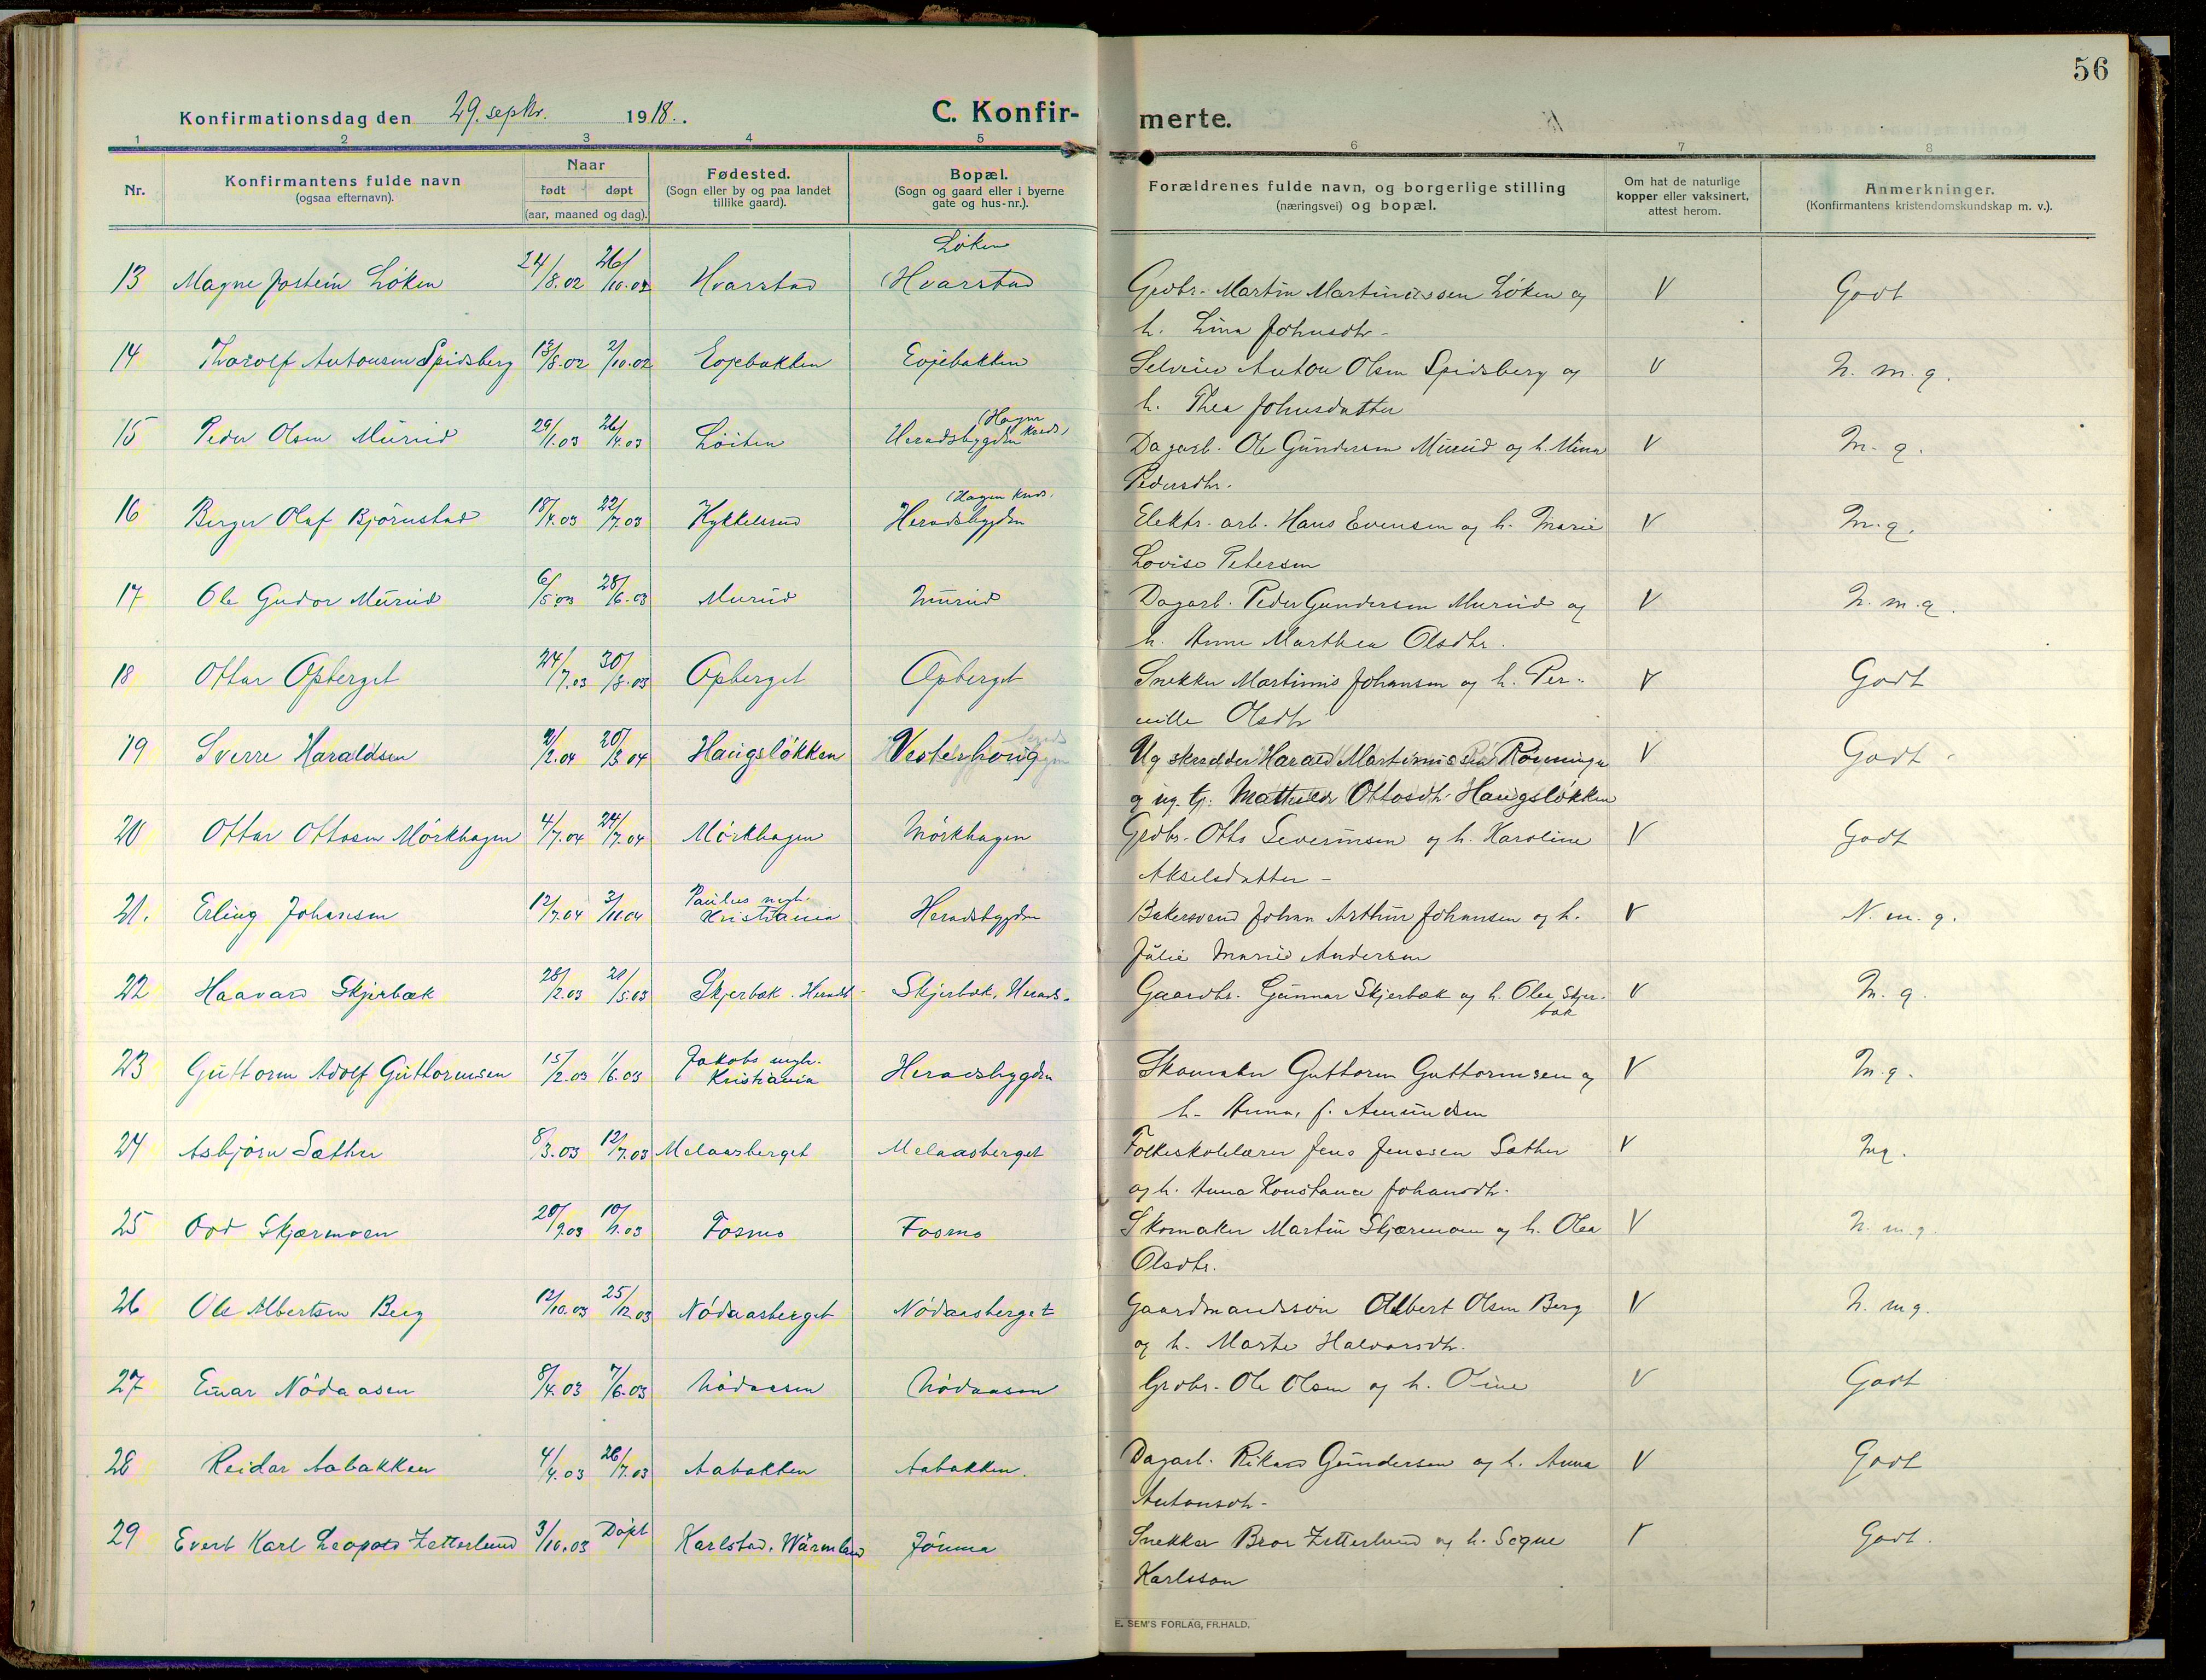 56
Konfirmationsdag den 29. septbr. 1918. C. Konfir- merte.
1 2 3 4 5 6 7 8
Nr. Konfirmantens fulde navn (ogsaa efternavn). Naar født døpt (aar, maaned og dag). Fødested. (Sogn eller by og paa landet tillike gaard). Bopæl. (Sogn og gaard eller i byerne gate og hus-nr.). Forældrenes fulde navn, og borgerlige stilling (næringsvei) og bopæl. Om hat de naturlige kopper eller vaksinert, attest herom. Anmerkninger. (Konfirmantens kristendomskundskap m. v.).
Løken
13 Magne Jostein Løken 24/8.02 26/10.02 Hvarstad Hvarstad Grdbr. Martin Martinussen Løken og V Godt
h. Lina Johnsdtr.
14 Thorolf Antonsen Spidsberg 13/8.02 2/10.02 Evjebakken Evjebakken Selveier Anton Olsen Spidsberg og V N. m. g.
h. Thea Johnsdatter
(Hagen kreds)
15 Peder Olsen Murud 29/1.03 26/4.03 Löiten Heradsbygden Dagarb. Ole Gundersen Murud og h. Mina V M. g.
Pedersdtr.
(Hagen kreds.
16 Berger Olaf Bjørnstad 18/4.03 22/7.03 Kykkelsrud Heradsbygden Elektr. arb. Hans Evensen og h. Marie V M. g.
Lovise Petersen
17 Ole Gudor Murud 6/5.03 28/6.03 Murud Murud Dagarb. Peder Gundersen Murud og V N. m. g.
h. Anne Marthea Olsdtr.
18 Ottar Opberget 24/7.03 30/8.03 Opberget Opberget Snekker Martinus Johansen og h. Per- V Godt
nille Olsdtr
19 Sverre Haraldsen 2/2.04 20/3.04 Haugsløkken Vesterhaug Ug skrædder Harald Martinussen Rønningen V Godt
og ug. tj. Mathilde Ottosdtr. Haugsløkken
20 Ottar Ottosen Mörkhagen 4/7.04 24/7.04 Mörkhagen Mörkhagen Grdbr. Otto Severinsen og h. Karoline V Godt
Akselsdatter -
21. Erling Johansen 12/7.04 3/11.04 Paulus mgh. Kristiania Heradsbygden Bakersvend Johan Arthur Johansen og h. V N. m. g.
Julie Marie Andersen
22 Haavard Skjerbæk 28/2.03 21/5.03 Skjerbæk. Heradb Skjerbæk, Herads. Gaardbr. Gunnar Skjerbæk og h. Olea Skjer- V M. g.
bæk
23 Guttorm Adolf Guttormsen 15/2.03 1/6.03 Jakobs mgh. Kristiania Heradsbygden Skomaker Guttorm Guttormsen og V M. g.
h. Anna, f. Amundsen
24 Asbjørn Sæther 8/3.03 12/7.03 Melaasberget Melaasberget Folkeskolelærer Jens Jenssen Sæther V Mg.
og h. Anna Konstance Johansdtr.
25 Odd Skjærmoen 20/9.03 Fosmo Fosmo Skomaker Martin Skjærmoen og h. Olea V N. m. g.
Olsdtr.
26 Ole Albertsen Berg 12/10.03 25/12.03 Nödaasberget Nödaasberget Gaardmandssön Albert Olsen Berg V N. mg.
og h. Marte Halvorsdtr.
27 Einar Nödaasen 8/4.03 7/6.03 Nödaasen Nödaasen Grdbr. Ole Olsen og h. Oline V Godt
28 Reidar Aabakken 4/4.03 26/7.03 Aabakken Aabakken. Dagarb. Rikard Gundersen og h. Anna V Godt
Antonsdtr.
29 Evert Karl Leopold Zetterlund 3/10.03 Döpt Karlstad. Wärmland Jömna Snekker Bror Zetterlund og h. Signe V Godt.
Karlsson
E. SEM'S FORLAG, FR.HALD.